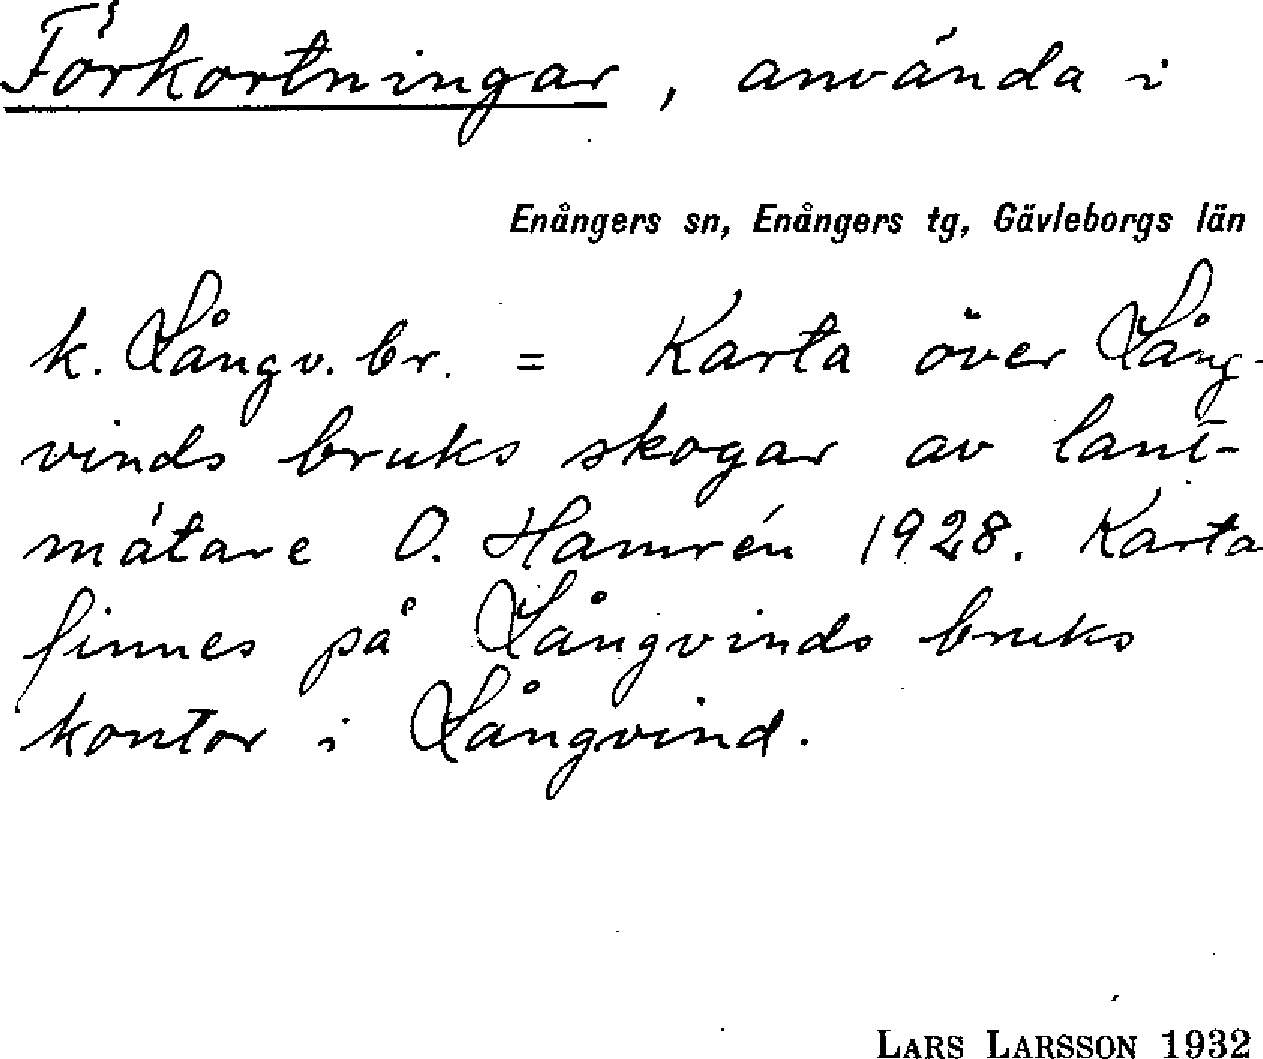 Förkortningar, använda i
Enångers sn, Enångers tg, Gävleborgs län
k. Långv. br. = Karta över Lång-
vinds bruks skogar av lant-
mätare O. Hamrén 1928. Karta
finnes på Långvinds bruks
kontor i Långvind.
LARS LARSSON 1932